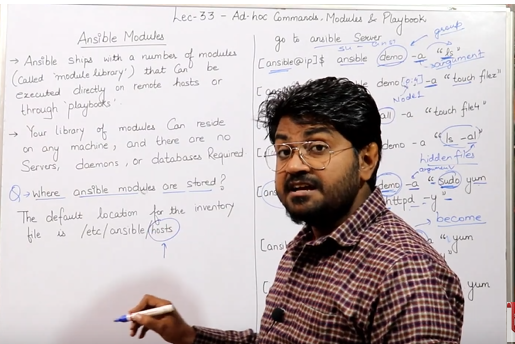 Lec-33 - Ad-hoc Commands, Modules & Playbook
Ansible Modules
→ Ansible ships with a number of modules
(called 'module library') that can be
executed directly on remote hosts or
through 'playbooks'.
→ Your library of modules can reside
on any machine, and there are no
Servers, daemons, or databases Required
Q → Where ansible modules are stored?
The default location for the inventory
file is /etc/ansible/hosts
go to ansible server
group
[ansible@ip]$ ansible demo -a "ls"
argument
demo[0:1] -a "touch file2"
Node1
all -a "touch file4"
demo -a "ls -al"
hidden files
demo -a "sudo yum
httpd -y"
become
"yum
yum